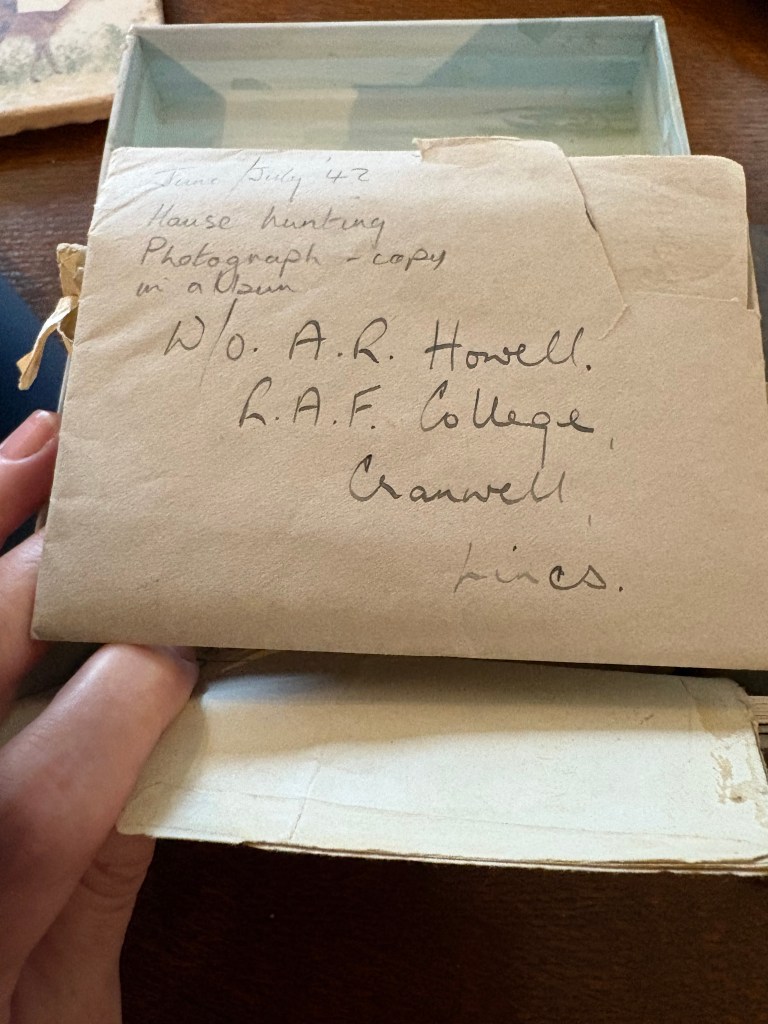 June/July '42
House hunting
Photograph - copy
in album
W/o. A.R. Howell.
R.A.F. College,
Cranwell,
Lincs.